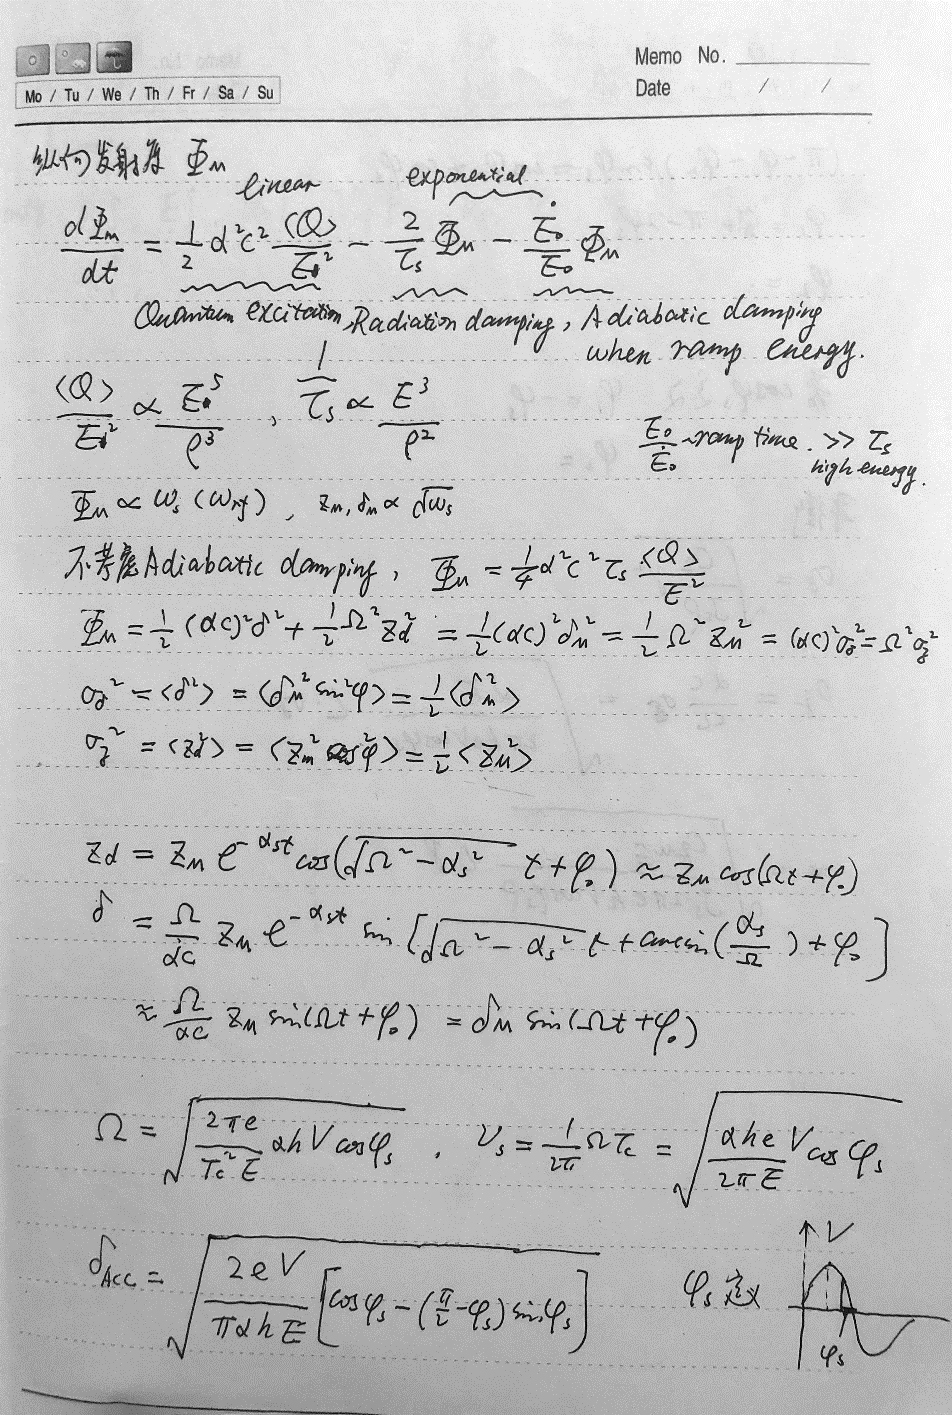 Memo No.
Mo / Tu / We / Th / Fr / Sa / Su
Date / /
纵向发射度 Φ_m
linear exponential
dΦ_m/dt = 1/2 α²c² <Q>/E₀² - 2/τ_s Φ_m - Ė₀/E₀ Φ_m
Quantum excitation, Radiation damping, Adiabatic damping
when ramp energy.
<Q>/E₀² ∝ E₀⁵/ρ³ , 1/τ_s ∝ E³/ρ²
E₀/Ė₀ ~ ramp time. >> τ_s
high energy.
Φ_m ∝ ω_s (ω_rf) , z_m, δ_m ∝ √ω_s
不考虑 Adiabatic damping, Φ_m = 1/4 α²c² τ_s <Q>/E²
Φ_m = 1/2 (αc)²δ² + 1/2 Ω² z_d² = 1/2 (αc)² δ_m² = 1/2 Ω² z_m² = (αc)² σ_δ² = Ω² σ_z²
σ_δ² = <δ²> = <δ_m² sin²φ> = 1/2 <δ_m²>
σ_z² = <z_d²> = <z_m² cos²φ> = 1/2 <z_m²>
z_d = z_m e^(-α_s t) cos(√(Ω² - α_s²) t + φ₀) ≈ z_m cos(Ωt + φ₀)
δ = Ω/αc z_m e^(-α_s t) sin [√(Ω² - α_s²) t + arcsin(α_s/Ω) + φ₀]
≈ Ω/αc z_m sin(Ωt + φ₀) = δ_m sin(Ωt + φ₀)
Ω = √(2πe/(T_c² E) αhV cosφ_s) . ν_s = 1/2π Ω T_c = √(αhe/(2πE) V cos φ_s)
δ_Acc = √(2eV/(παhE) [cosφ_s - (π/2 - φ_s) sinφ_s])
φ_s 定义
V
φ_s